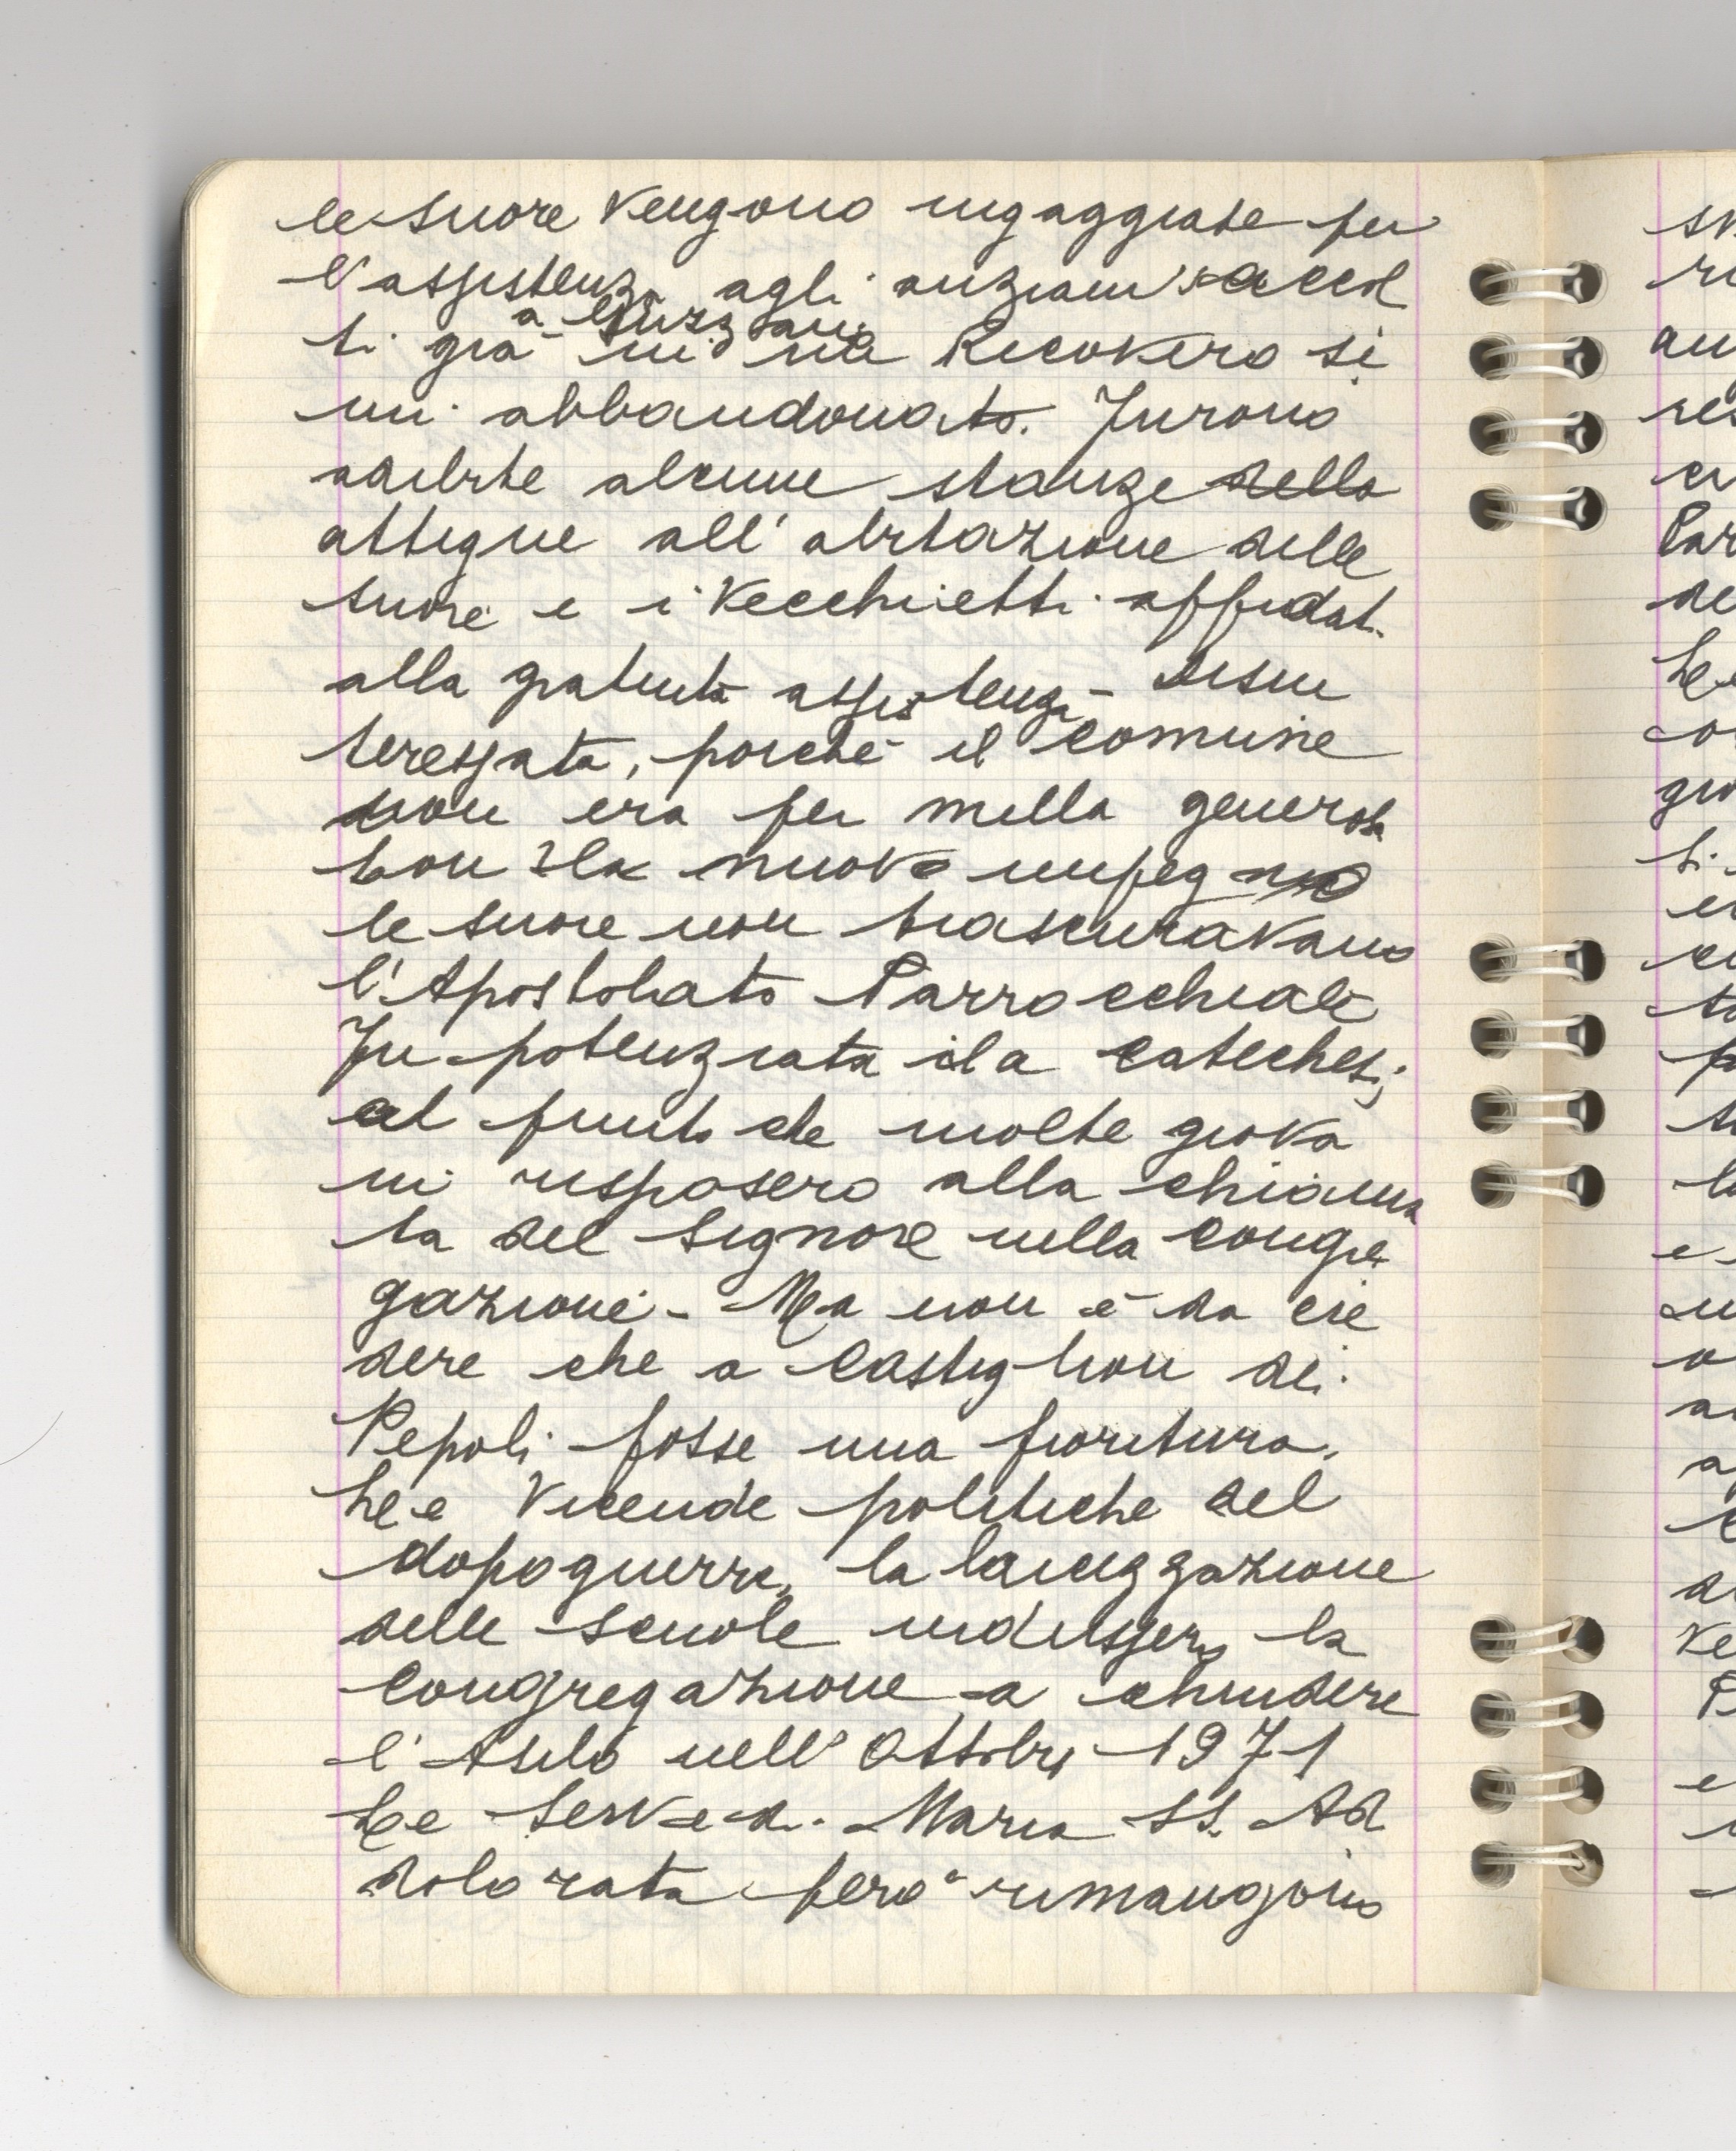 le suore vengono ingaggiate per
l'assistenza agli anziani accol
a
ti già in un Ricovero si
ni abbandonato. Furono
adibite alcune stanze della
attigue all'abitazione delle
suore e i vecchietti affidati
alla gratuita assistenza - disin
teressata, poiché il comune
non era per nulla generoso
con la nuovo impegno
le suore non trascuravano
l'Apostolato Parrocchiale
Fu potenziata la catechesi;
al punto che molte giova
ni risposero alla chiama
ta del Signore nella congre
gazione - Ma non è da cre
dere che a Castiglion dei
Pepoli fosse una fioritura.
Le Vicende politiche del
dopoguerra, la laicizzazione
delle scuole indussero la
Congregazione a chiudere
l'Asilo nell'Ottobre 1971
Le Serve di Maria SS. Ad
dolorata però rimangono